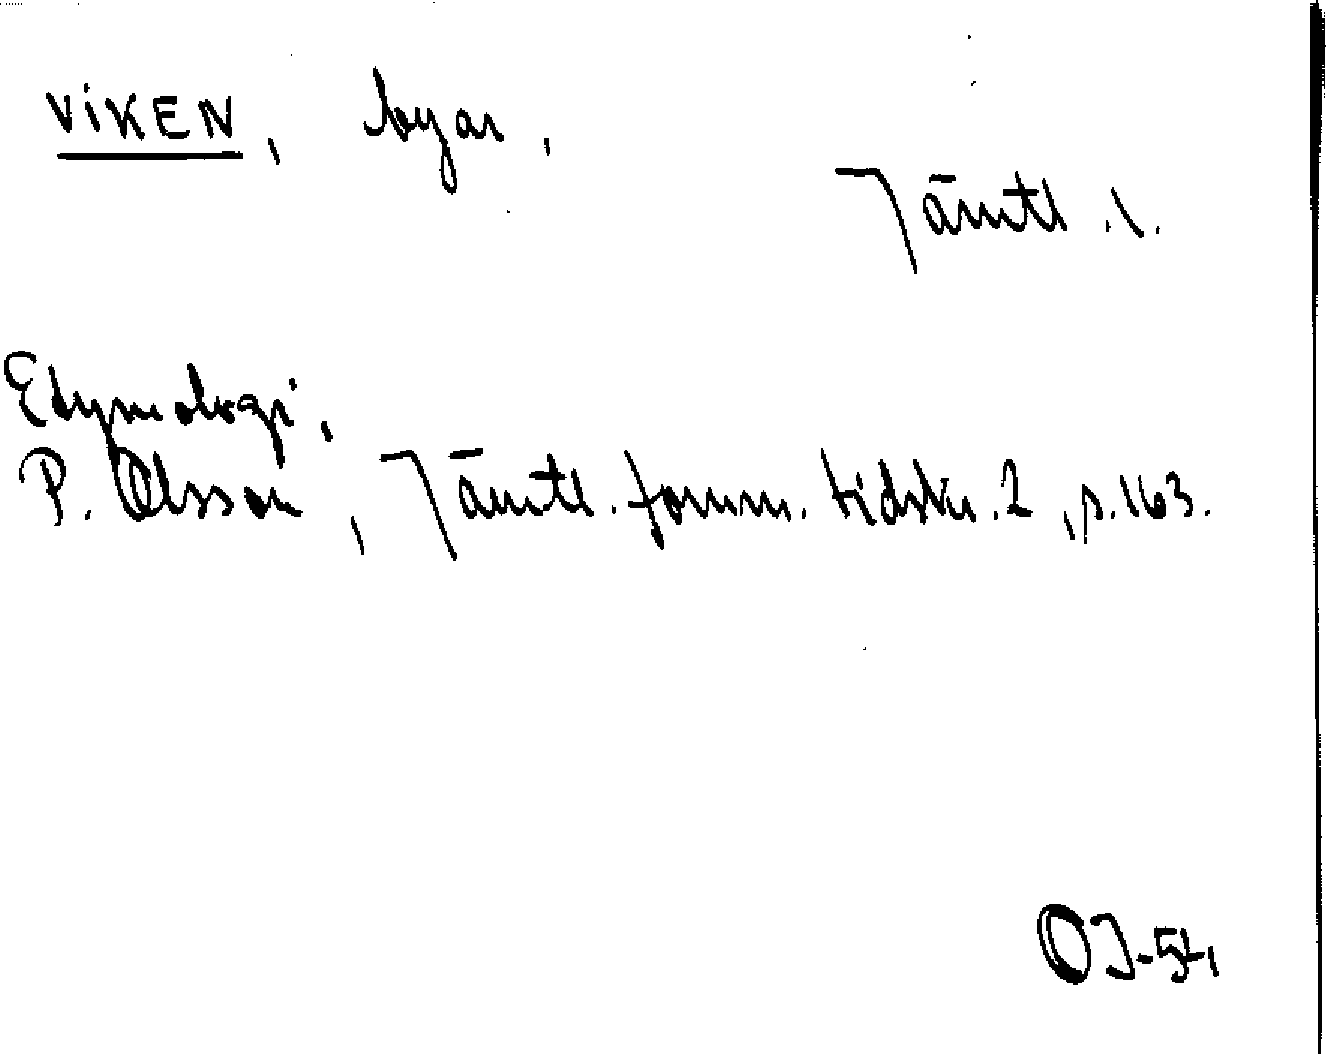 VIKEN, byar,
Jämtl. l.
Etymologi,
P. Olsson, Jämtl. fornm. tidskr. 2, s. 163.
OJ-54